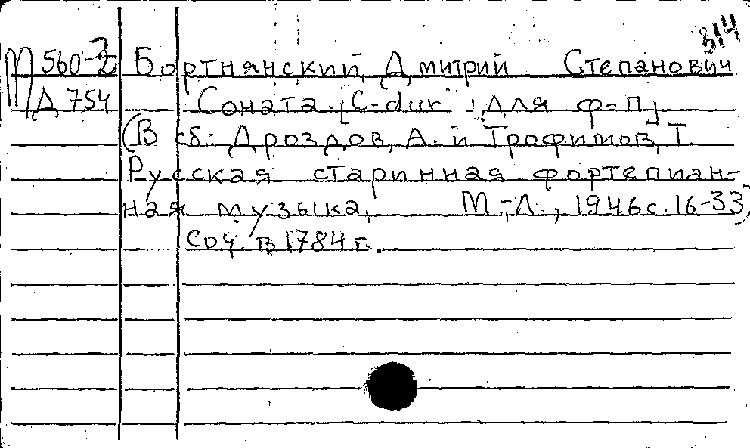 314
М 560-2 Бортнянский, Дмитрий Степанович
Д 754 Соната [C-dur для ф-п]
(В сб: Дроздов, А. и Трофимов, Т.
Русская старинная фортепиан-
ная музыка, М.-Л., 1946 с. 16-33)
Соч. в 1784 г.